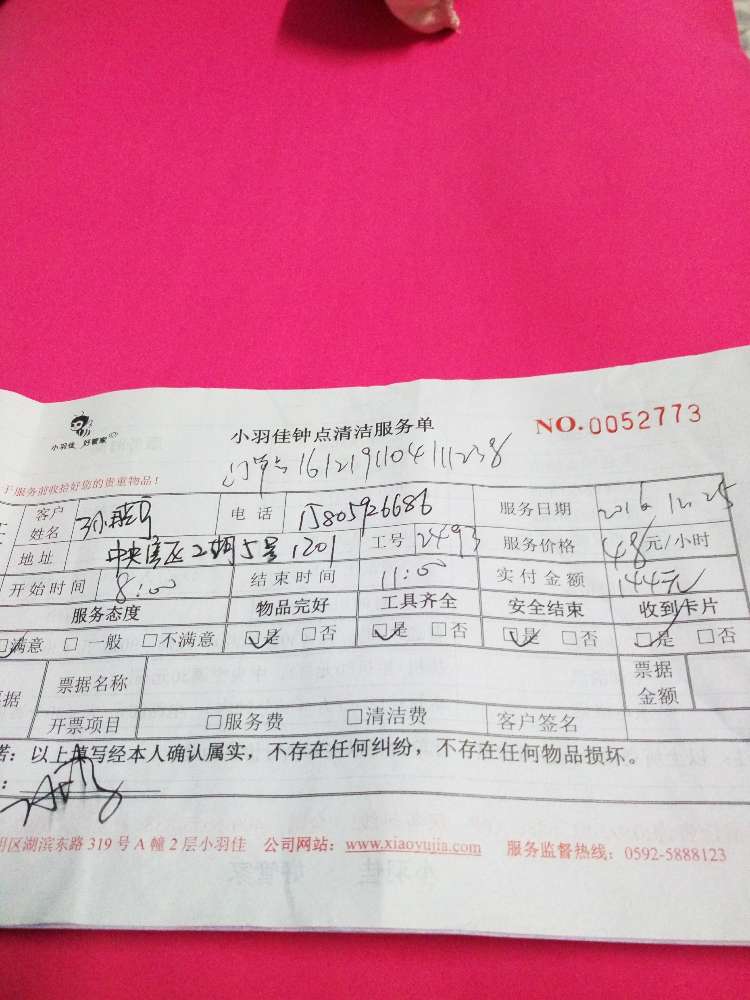 小羽佳 好管家
小羽佳钟点清洁服务单
NO.0052773
订单号161219110411238
于服务前收拾好您的贵重物品！
客户姓名 电话 15805926686 服务日期 2016.12.25
地址 中央 5号1201 工号 2493 服务价格 48元/小时
开始时间 8:00 结束时间 11:00 实付金额 144元
服务态度 物品完好 工具齐全 安全结束 收到卡片
满意 □一般 □不满意 □是 □否 □是 □否 □是 □否 □是 □否
据 票据名称 票据金额
开票项目 □服务费 □清洁费 客户签名
诺：以上填写经本人确认属实，不存在任何纠纷，不存在任何物品损坏。
：
明区湖滨东路319号A幢2层小羽佳 公司网站：www.xiaoyujia.com 服务监督热线：0592-5888123